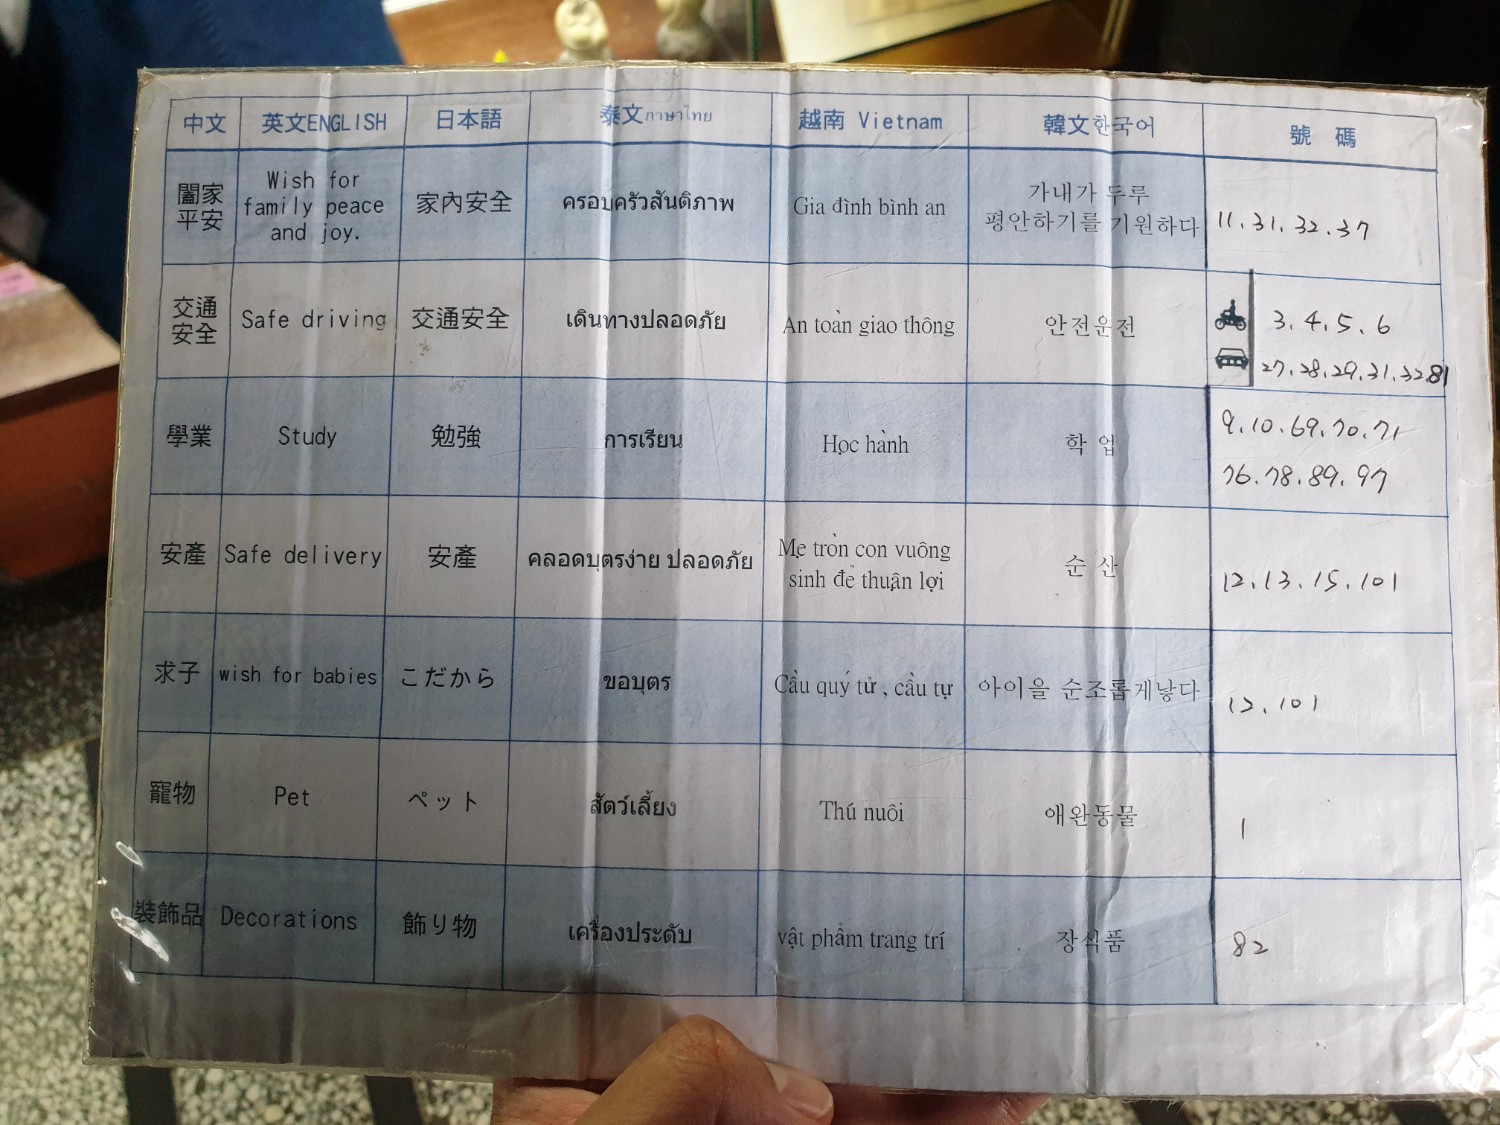 中文 英文ENGLISH 日本語 泰文ภาษาไทย 越南 Vietnam 韓文한국어 號 碼
闔家
平安
Wish for
family peace
and joy.
家內安全
ครอบครัวสันติภาพ
Gia đình bình an
가내가 두루
평안하기를 기원하다
11.31.32.37
交通
安全
Safe driving
交通安全
เดินทางปลอดภัย
An toàn giao thông
안전운전
3.4.5.6
27.28.29.31.32.81
學業
Study
勉強
การเรียน
Học hành
학 업
9.10.69.70.71
76.78.89.97
安產
Safe delivery
安產
คลอดบุตรง่าย ปลอดภัย
Mẹ tròn con vuông
sinh đẻ thuận lợi
순 산
12.13.15.101
求子
wish for babies
こだから
ขอบุตร
Cầu quý tử , cầu tự
아이을 순조롭게낳다
12.101
寵物
Pet
ペット
สัตว์เลี้ยง
Thú nuôi
애완동물
1
裝飾品
Decorations
飾り物
เครื่องประดับ
vật phẩm trang trí
장식품
82